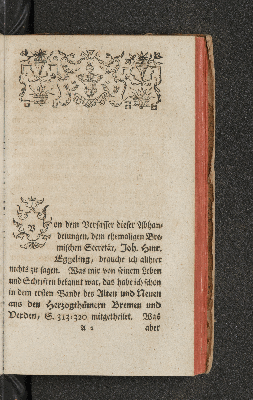 Von dem Verfasser dieser Abhan-
delungen, dem ehemaligen Bre-
mischen Secretär, Joh. Hinr.
Eggeling, brauche ich allhier
nichts zu sagen. Was mir von seinem Leben
und Schriften bekannt war, das habe ich schon
in dem ersten Bande des Alten und Neuen
aus den Herzogthümern Bremen und
Verden, S. 313-320 mitgetheilet. Was
A 2 aber